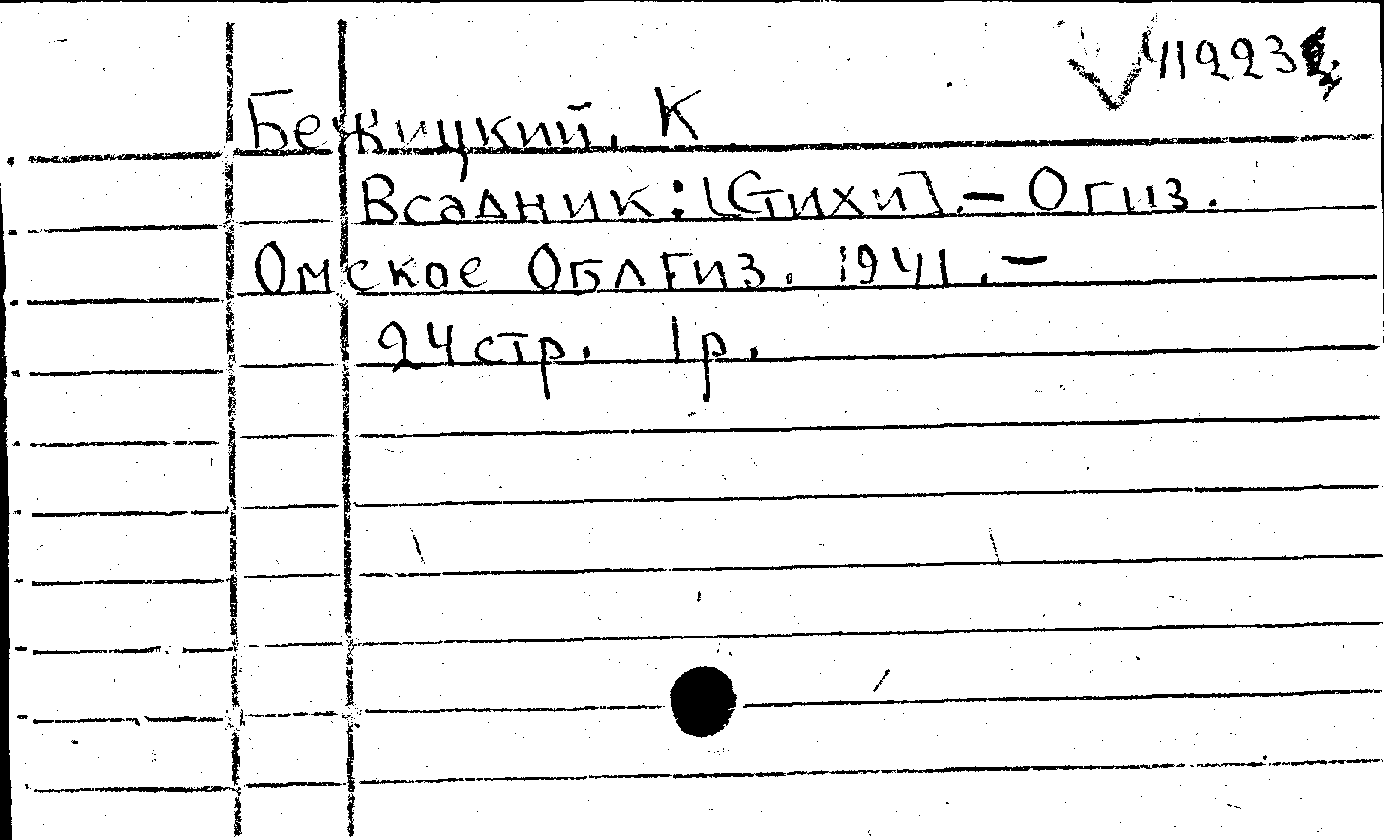 Бежицкий, К
Всадник: [Стихи]. – Огиз.
Омское Облгиз. 1941. –
24 стр. 1 р.